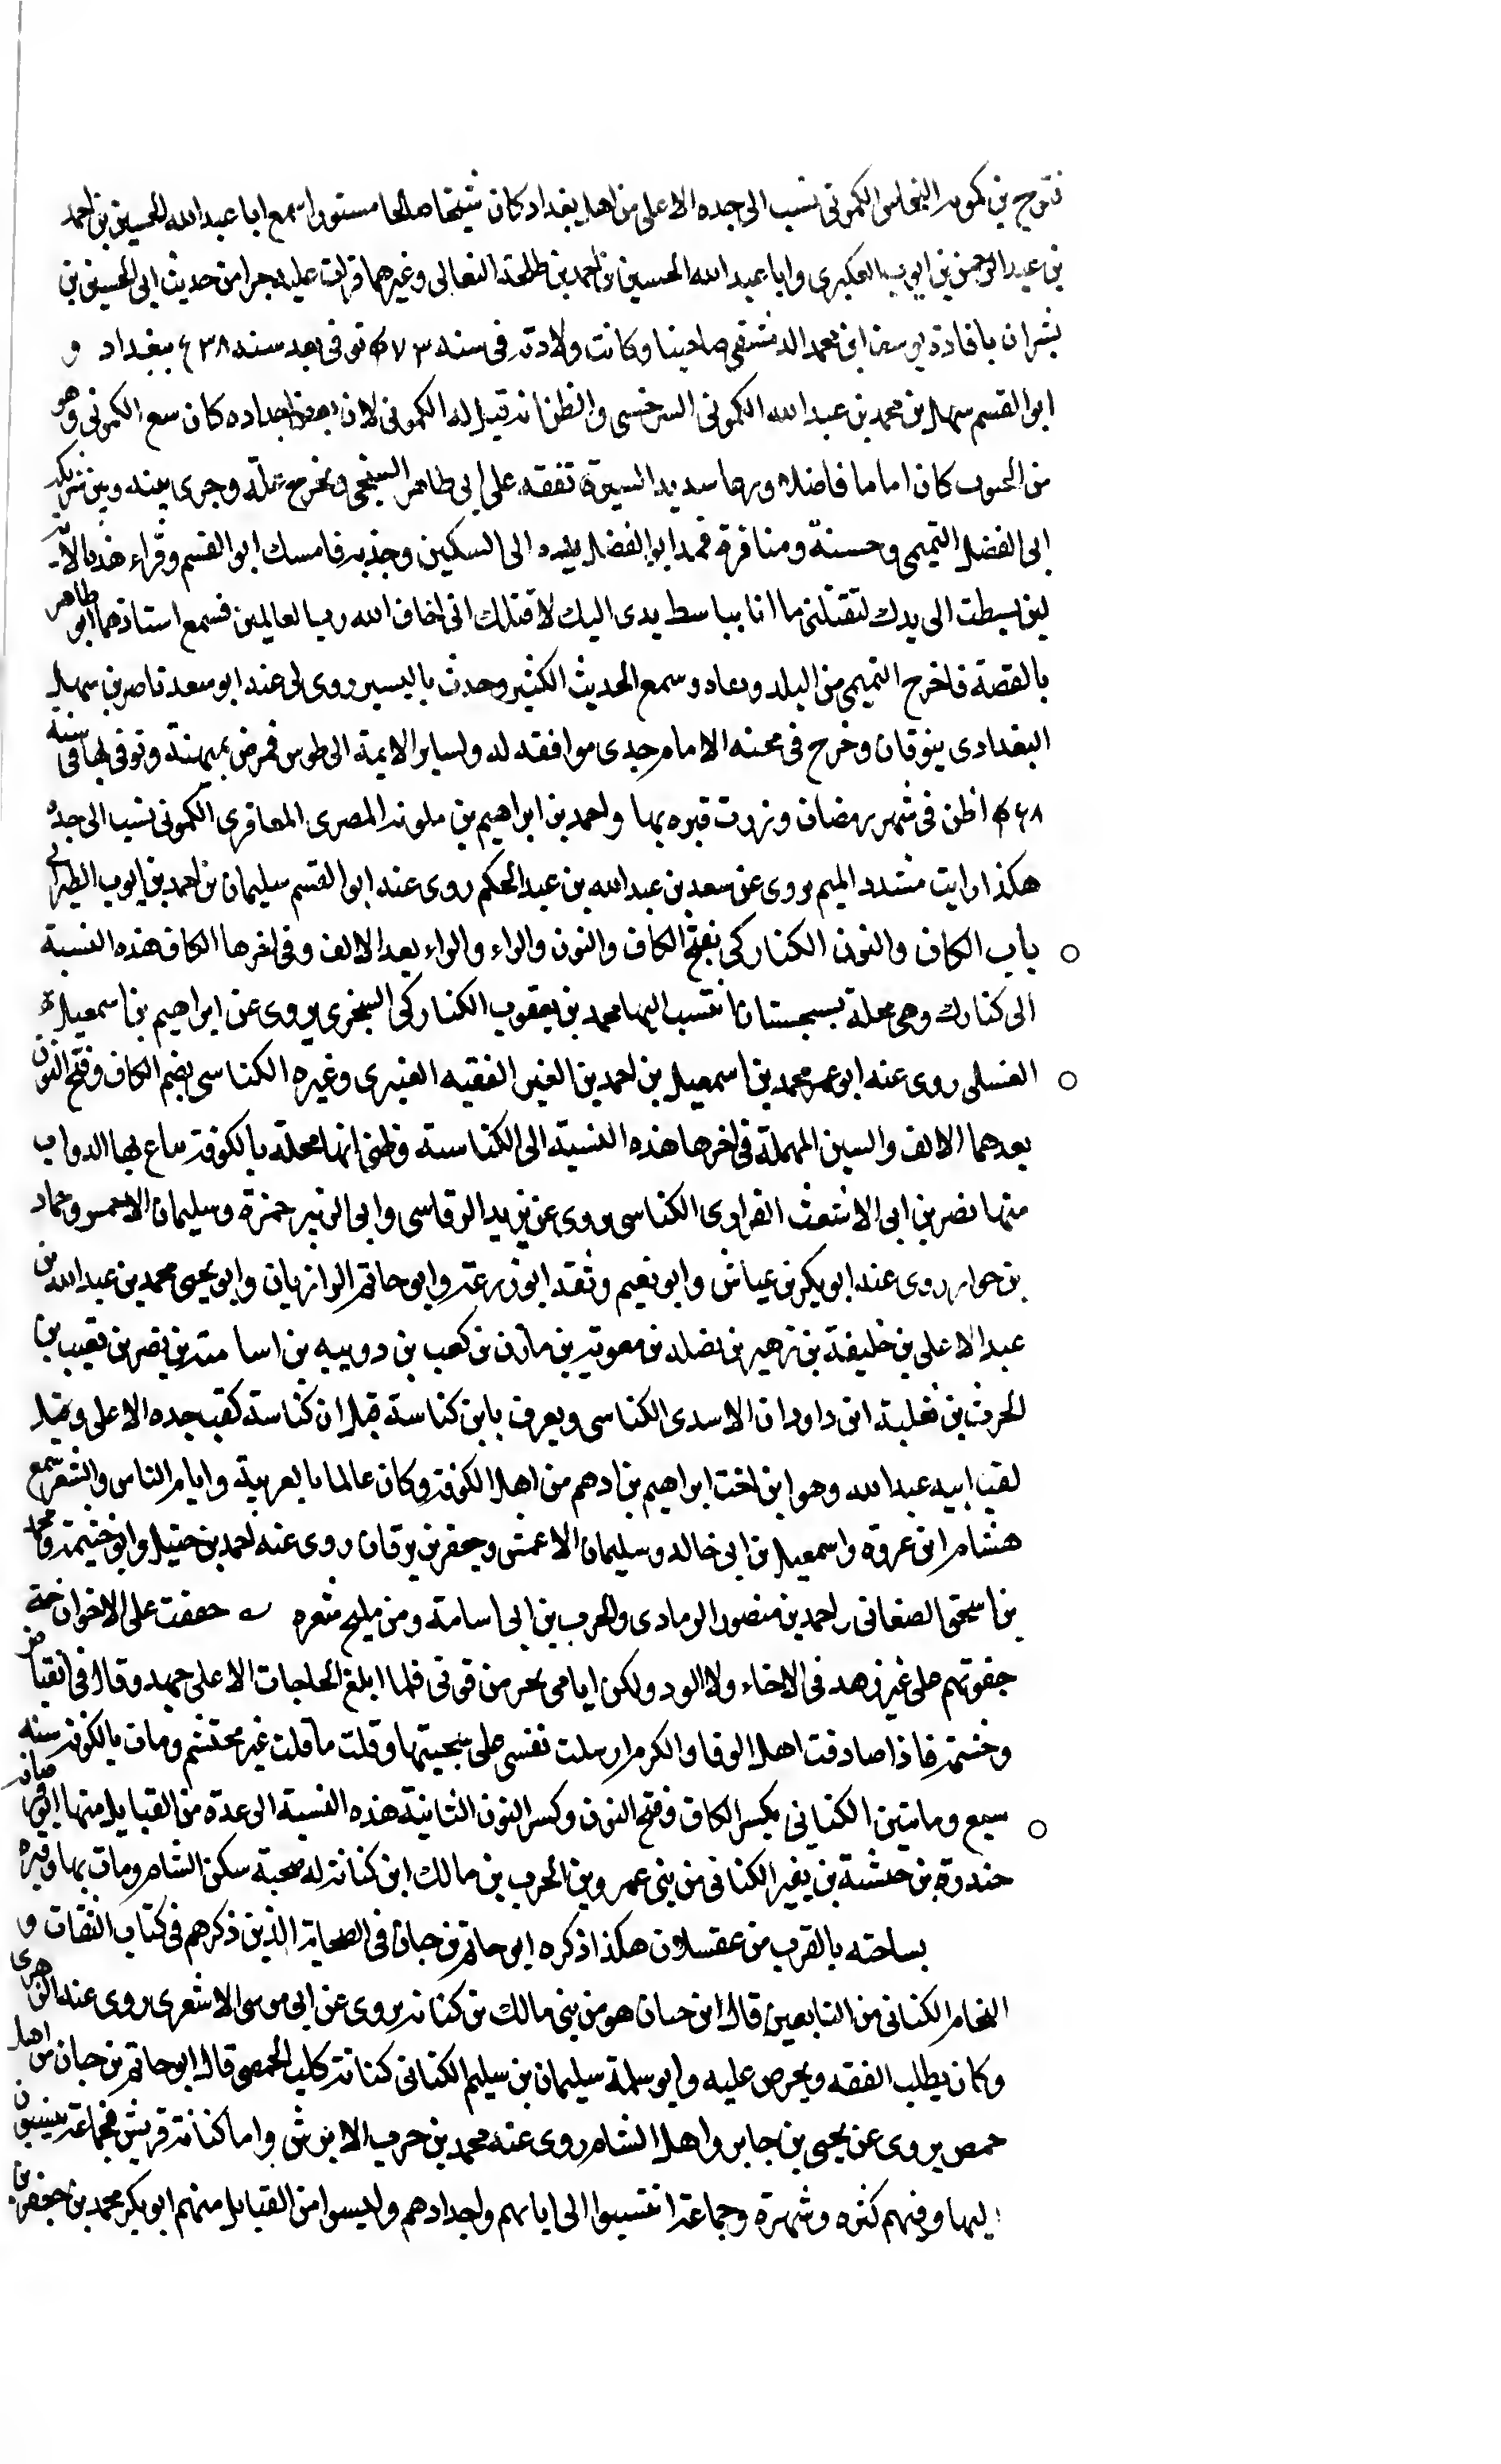 فتوح بن كمونه النخاس الكمونى نسب الى جده الاعلى من اهل بغداد كان شيخا صالحا مستورا سمع ابا عبد الله الحسين بن احمد
بن عبد الرحمن بن ايوب العكبرى وابا عبد الله الحسين بن احمد بن طلحة النعالى وغيرهما قرات عليه جزا من حديث ابى الحسين بن
بشران بافادة يوسف ابن محمد الدمشقى صاحبنا وكانت ولادته فى سنه ٤٧٣ توفى بعد سنه ٥٣٨ ببغداد و
ابو القسم سهل بن محمد بن عبد الله الكمونى السرخسى واظن انه قيل له الكمونى لان بعض اجداده كان يبيع الكمونى وهو
من الحبوب كان اماما فاضلا ورعا سديد السيرة تفقه على ابى طاهر السنجى وتخرج عليه وجرى بينه وبين شريكه
ابى الفضل التميمى وحسنة ومنافرة فمد ابو الفضل يده الى السكين وجذبه فامسك ابو القسم وقراء هذه الاية
لين بسطت الى يدك لتقتلنى ما انا بباسط يدى اليك لاقتلك انى اخاف الله رب العالمين فسمع استاذهما ابو طاهر
بالقصة فاخرج التميمى من البلد وعاد وسمع الحديث الكثير وحدث باليسير روى لى عنه ابو سعد ناصر بن سهل
البغدادى بنوقان وخرج فى محنه الامام جدى موافقه له ولساير الايمة الى طوس فمرض بميهنة وتوفى بها فى سنه
٤٦٨ اظن فى شهر رمضان وزرت قبره بها واحمد بن ابراهيم بن ملونه المصرى المعافرى الكمونى نسب الى جده
هكذا رايت مشدد الميم يروى عن سعد بن عبد الله بن عبد الحكم روى عنه ابو القسم سليمان بن احمد بن ايوب الطبرانى
باب الكاف والنون الكناركى بفتح الكاف والنون والراء والراء بعد الالف وفى اخرها الكاف هذه النسبة
الى كنارك وهى محلة بسجستان انتسب اليها محمد بن يعقوب الكناركى السجزى يروى عن ابراهيم بن اسمعيل
الغسلى روى عنه ابو عمر محمد بن اسمعيل بن احمد بن العنبر الفقيه العنبرى وغيره الكناسى بضم الكاف وفتح النون
بعدهما الالف والسين المهملة فى اخرها هذه النسبة الى الكناسة وظنى انها محلة بالكوفة يباع بها الدواب
منها نصر بن ابى الاشعث الفراوى الكناسى يروى عن يزيد الرقاسى وابى الزبير حمزة وسليمان الاحمس وحماد
بن حوار روى عنه ابو بكر بن عياش وابو نعيم وثقه ابو زرعة وابو حاتم الرازيان وابو يحيى محمد بن عبد الله بن
عبد الاعلى بن خليفة بن زهير بن نضله بن معوية بن مازن بن كعب بن دويبه بن اسامة بن نصر بن قعيب بن
الحرث بن ثعلبة ابن داودان الاسدى الكناسى ويعرف بابن كناسة قيل ان كناسة لقب جده الاعلى وقيل
لقب ابيه عبد الله وهو ابن اخت ابراهيم بن ادهم من اهل الكوفة وكان عالما بالعربية وايام الناس والشعر سمع
هشام ابن عروة واسمعيل بن ابى خالد وسليمان الاعمش وجعفر بن برقان روى عنه احمد بن حنبل وابو خيثمة ومحمد
بن اسحق الصغانى واحمد بن منصور الرمادى والحرب بن ابى اسامة ومن مليح شعره حففت على الاخوان
جفوتهم على غير زهد فى الاخاء ولا الود ولكن ايامى تخر من قوتى فلما ابلغ الحاجات الا على جهد وقال فى انقباض
وخشمة فاذا صادفت اهل الوفا والكرم ارسلت نفسى على سجيتها وقلت ما قلت غير محتشم ومات بالكوفه سنه
سبع ومايتين الكنانى بكسر الكاف وفتح النون وكسر النون الثانية هذه النسبة الى عدة من القبايل منها ابو قرصافه
حندرة بن خشنة بن بغير الكنانى من بنى عمرو بن الحرب بن مالك ابن كنانه له صحبة سكن الشام ومات بها وقبره
بساحته بالقرب من عقسلان هكذا ذكره ابو حاتم بن حبان فى الصحابة الذين ذكرهم فى كتاب الثقات و
النحام الكنانى من التابعين قال ابن حبان هو من بنى مالك بن كنانه يروى عن ابى موسى الاشعرى روى عنه الزهرى
وكان يطلب الفقه ويحرص عليه وابو سلمة سليمان بن سليم الكنانى كنانة كلب الحمصى قال ابو حاتم بن حبان من اهل
حمص يروى عن يحيى بن جابر واهل الشام روى عنه محمد بن حرب الابرش واما كنانة قريش فجماعة ينسبون
اليها وفيهم كثره وشهرة وجماعة انتسبوا الى ابايهم واجدادهم وليسوا من القبايل منهم ابو بكر محمد بن جعفر بن